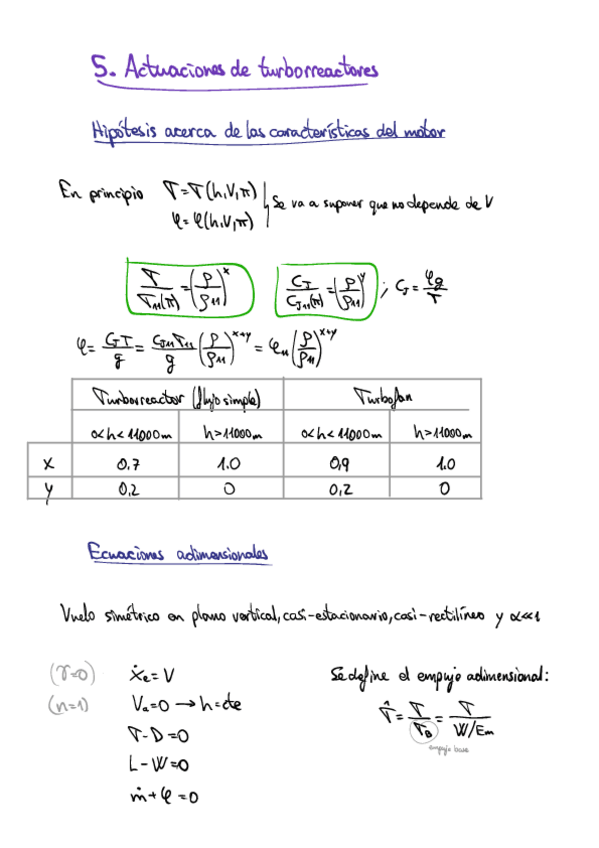 5. Actuaciones de turborreactores
Hipótesis acerca de las características del motor
En principio T=T(h,V,π) | Se va a suponer que no depende de V
φ=φ(h,V,π)
T/T₁₁(π) = (ρ/ρ₁₁)^x   C_J/C_J₁₁(π) = (ρ/ρ₁₁)^y ; C_J = φg/T
φ = C_J T/g = C_J₁₁T₁₁/g (ρ/ρ₁₁)^x+y = φ₁₁(ρ/ρ₁₁)^x+y
Turborreactor (flujo simple) Turbofan
0<h<11000m h>11000m 0<h<11000m h>11000m
x 0,7 1.0 0,9 1.0
y 0,2 0 0,2 0
Ecuaciones adimensionales
Vuelo simétrico en plano vertical, casi-estacionario, casi-rectilíneo y α≪1
(γ=0) ẋe = V Se define el empuje adimensional:
(n=1) Va=0 → h=cte T̂ = T/T_B = T/(W/Em)
T-D=0 empuje base
L-W=0
ṁ+φ=0